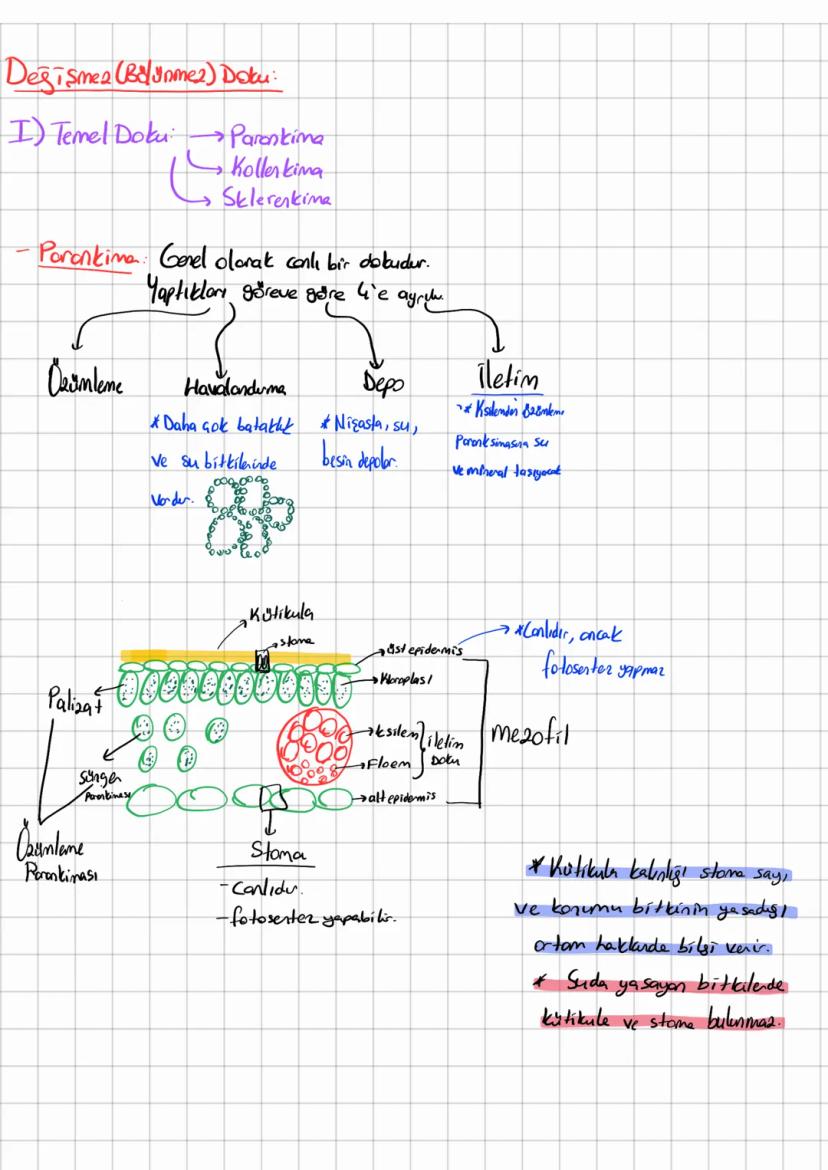 Değişmez (Bölünmez) Doku:
I) Temel Doku: → Parankima
→ Kollenkima
→ Sklerenkima
- Parankima: Genel olarak canlı bir dokudur.
Yaptıkları göreve göre 4'e ayrılır.
Özümleme Havalandırma Depo İletim
* Daha çok bataklık
ve su bitkilerinde
vardır.
* Nişasta, su,
besin depolar.
* Ksilemden özümleme
Paranksimasına su
ve mineral taşıyacak
Kütikula
stoma
üst epidermis
*Canlıdır, ancak
fotosentez yapmaz
Kloroplast
Palizat
ksilem
Floem
iletim
Doku
Mezofil
Sünger
Parankiması
alt epidermis
Özümleme
Parankiması
Stoma
- Canlıdır.
- fotosentez yapabilir.
* Kütikula kalınlığı stoma sayı,
ve konumu bitkinin yaşadığı
ortam hakkında bilgi verir.
* Suda yaşayan bitkilerde
kütikula ve stoma bulunmaz.